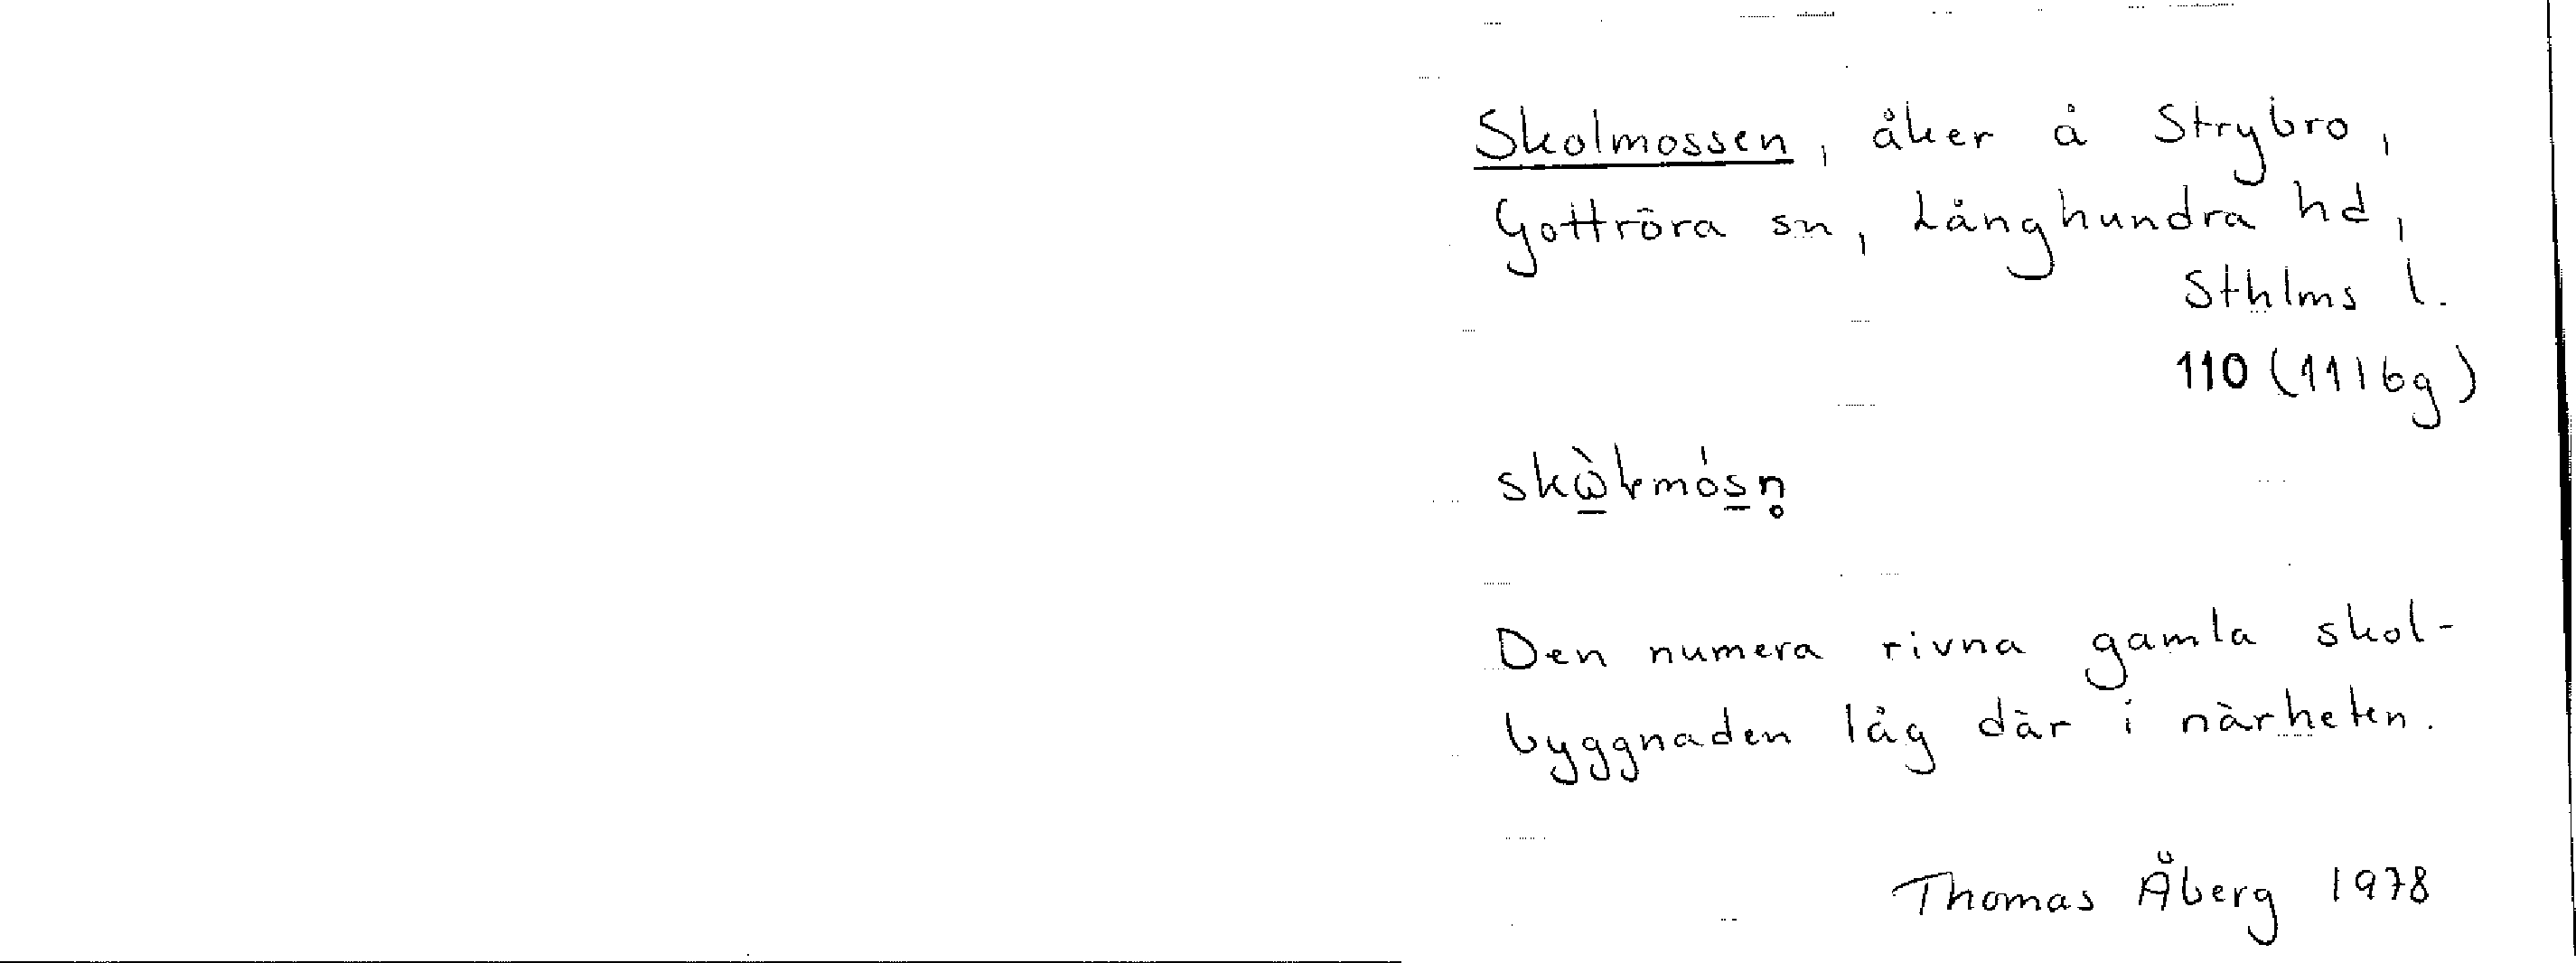 Skolmossen, åker å Strybro,
Gottröra sn, Långhundra hd,
Sthlms l.
110 (11I6g)
Den numera rivna gamla skol-
byggnaden låg där i närheten.
Thomas Åberg 1978